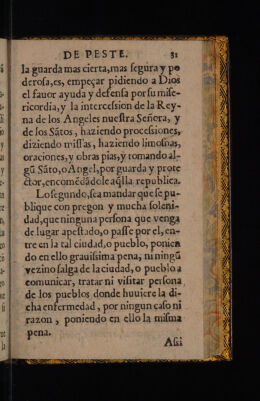 DE PESTE. 31
la guarda mas cierta, mas segura y po
derosa, es, empeçar pidiendo a Dios
el fauor ayuda y defensa por su mise-
ricordia, y la intercession de la Rey-
na de los Angeles nuestra Señora, y
de los Sãtos, haziendo processiones,
diziendo missas, haziendo limosnas,
oraciones, y obras pias, y tomando al-
gũ Sãto, o Angel, por guarda y prote
ctor, encomẽdãdole aq̃lla republica.
Lo segundo, sea mandar que se pu-
blique con pregon y mucha soleni-
dad, que ninguna persona que venga
de lugar apestado, o passe por el, en-
tre en la tal ciudad, o pueblo, ponien
do en ello grauissima pena, ni ningũ
vezino salga de la ciudad, o pueblo a
comunicar, tratar ni visitar persona
de los pueblos donde huuiere la di-
cha enfermedad, por ningun caso ni
razon, poniendo en ello la misma
pena.
Assi